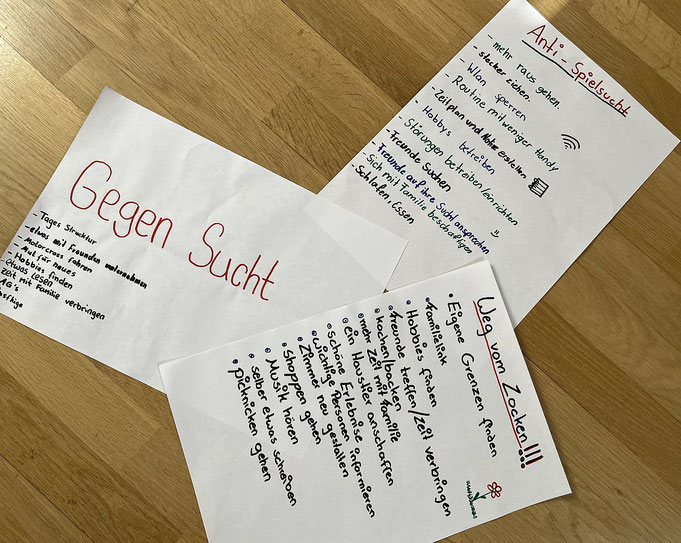 Gegen Sucht
- Tages Struktur
- etwas mit Freunden unternehmen
- Motorcross fahren
- Mut für neues
- Hobbies finden
- etwas Lesen
Zeit mit Familie verbringen
AG's
Anti - Spielsucht
- mehr raus gehen.
- stecker ziehen.
- Wlan sperren
- Routine mit weniger Handy
- Zeitplan und erstellen.
- Hobbys betreiben
- Störungen betreiben/einrichten
- Freunde Suchen
- Freunde auf ihre Sucht ansprechen
- Sich mit Familie beschäftigen
- Schlafen, Essen
Weg vom Zocken!!!
• Eigene Grenzen finden
• Familielink
• Hobbies finden
• freunde treffen/zeit verbringen
• kochen/backen
• mehr Zeit mit familie
• ein Haustier anschaffen
• schöne Erlebnise
• wichtige Personen informieren
• Zimmer neu gestalten
• shoppen gehen
• Musik hören
• selber etwas schreiben
• picknicken gehen